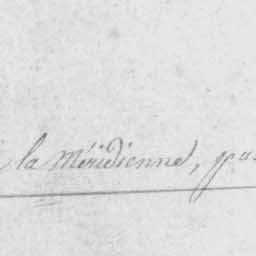 la Méridienne,